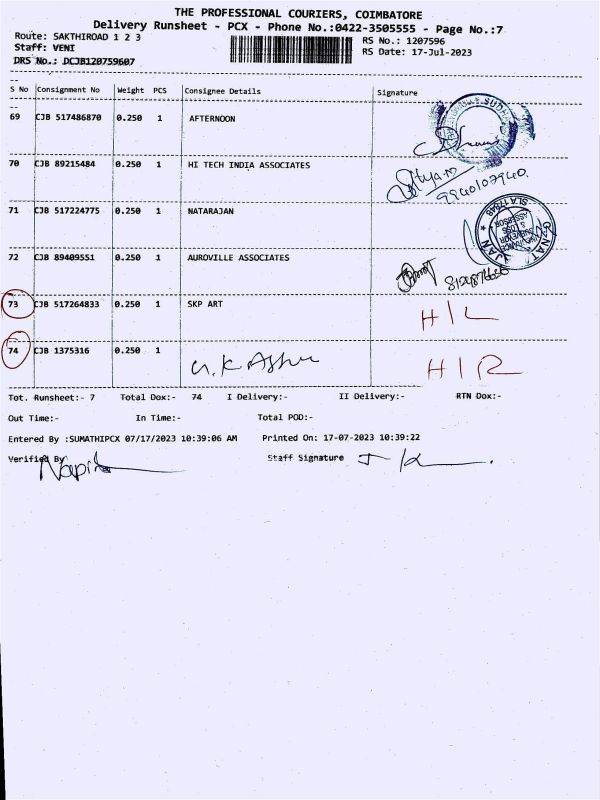 THE PROFESSIONAL COURIERS, COIMBATORE
Delivery Runsheet - PCX - Phone No.:0422-3505555 - Page No.:7
Route: SAKTHIROAD 1 2 3
RS No.: 1207596
Staff: VENI
RS Date: 17-Jul-2023
DRS No.: DCJB120759607
S No Consignment No Weight PCS Consignee Details Signature
69 CJB 517486870 0.250 1 AFTERNOON
70 CJB 89215484 0.250 1 HI TECH INDIA ASSOCIATES
9940102940
71 CJB 517224775 0.250 1 NATARAJAN
72 CJB 89409551 0.250 1 AUROVILLE ASSOCIATES
73 CJB 517264833 0.250 1 SKP ART H/L
74 CJB 1375316 0.250 1 H/R
Tot. Runsheet:- 7 Total Dox:- 74 I Delivery:- II Delivery:- RTN Dox:-
Out Time:- In Time:- Total POD:-
Entered By :SUMATHIPCX 07/17/2023 10:39:06 AM Printed On: 17-07-2023 10:39:22
Verified By Staff Signature